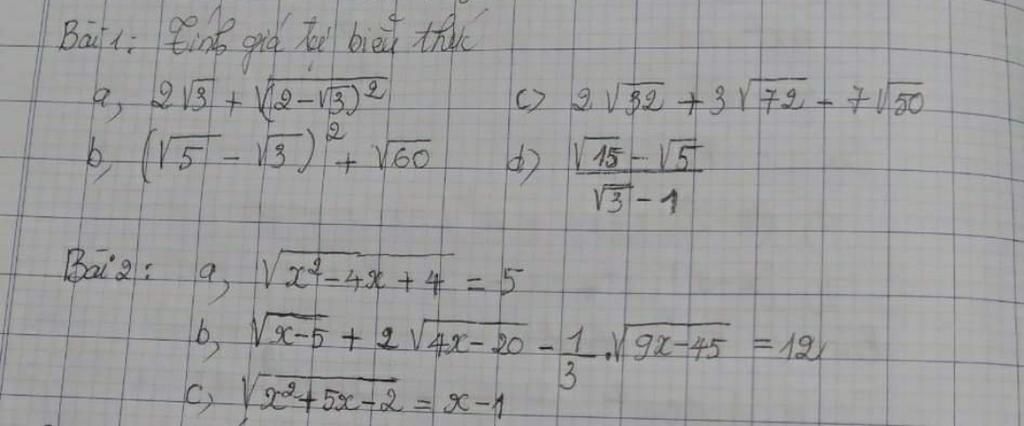 Bài 1: Tính giá trị biểu thức
a, 2√3 + √(2-√3)² c) 2√32 + 3√72 - 7√50
b, (√5 - √3)² + √60 d) (√15 - √5)/(√3 - 1)
Bài 2: a, √(x²-4x+4) = 5
b, √(x-5) + 2√(4x-20) - 1/3 . √(9x-45) = 12
c, √(x²+5x-2) = x-1